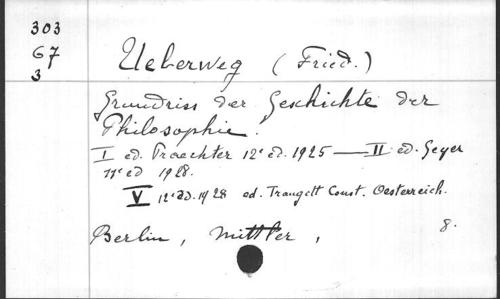 303
67
3
Ueberweg (Fried.)
Grundriss der Geschichte der
Philosophie.
I ed. Praechter 12e éd. 1925 — II ed. Geyer
11e éd 1928.
V 12e éd. 1928 ed. Traugott Const. Oesterreich.
Berlin, Mittler, 8.